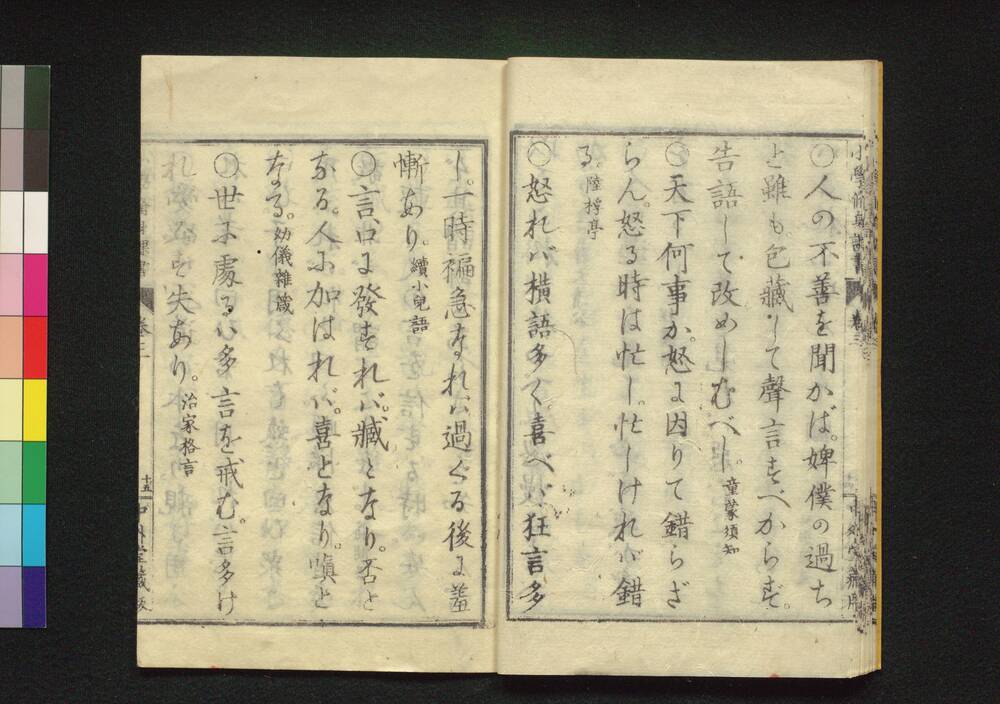 小學修身課書 卷三
〇人の不善を聞かば。婢僕の過ち
と雖も。包藏して聲言すべからず。
告語して改めしむべし。童蒙須知
〇天下何事か。怒に因りて錯らざ
らん。怒る時は忙し。忙しければ錯
る。陸桴亭
〇怒れば横語多く。喜べば狂言多
し。一時褊急なれば過ぐる後に羞
慚あり。續小兒語
〇言。口に發すれば。臧となり。否と
なる。人に加はれば。喜となり。嗔と
なる。幼儀雜箴
〇世に處るは多言を戒む。言多け
れば必ず失あり。治家格言
卷三 十五 中外堂藏版